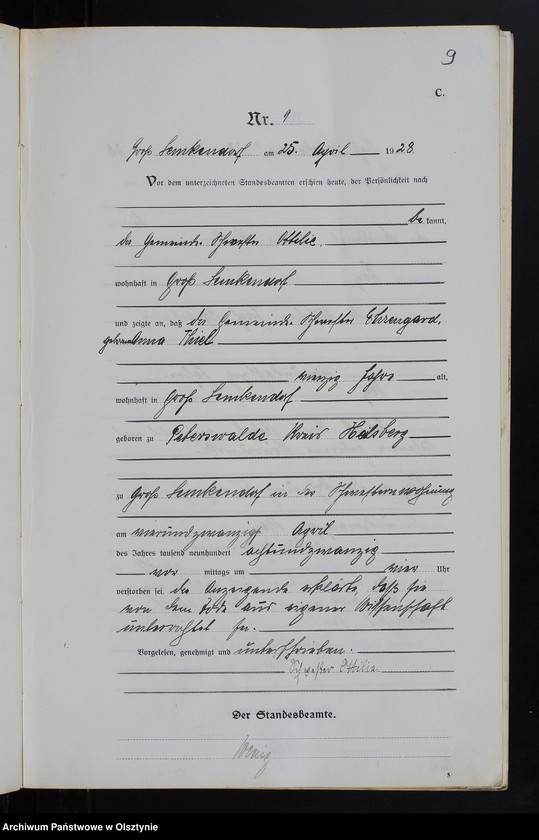 9
C.
Nr. 9
Groß Lemkendorf am 25. April 1928
Vor dem unterzeichneten Standesbeamten erschien heute, der Persönlichkeit nach
be kannt,
die Gemeinde-Schwester Ottilie
wohnhaft in Groß Lemkendorf
und zeigte an, daß die Gemeinde-Schwester Ehrengard,
geborene Anna Thiel
vierzig Jahre alt,
wohnhaft in Groß Lemkendorf
geboren zu Peterswalde Kreis Heilsberg
zu Groß Lemkendorf in der Schwesternwohnung
am vierundzwanzigsten April
des Jahres tausend neunhundert achtundzwanzig
vor mittags um vier Uhr
verstorben sei. die Anzeigende erklärte, daß sie
von dem Tode aus eigener Wissenschaft
unterrichtet sei.
Vorgelesen, genehmigt und unterschrieben.
Schwester Ottilie
Der Standesbeamte.
Archiwum Państwowe w Olsztynie